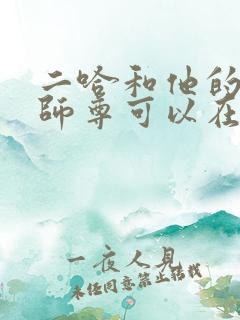 二哈和他的
師尊可以在
一夜人見
未经同意禁止转载